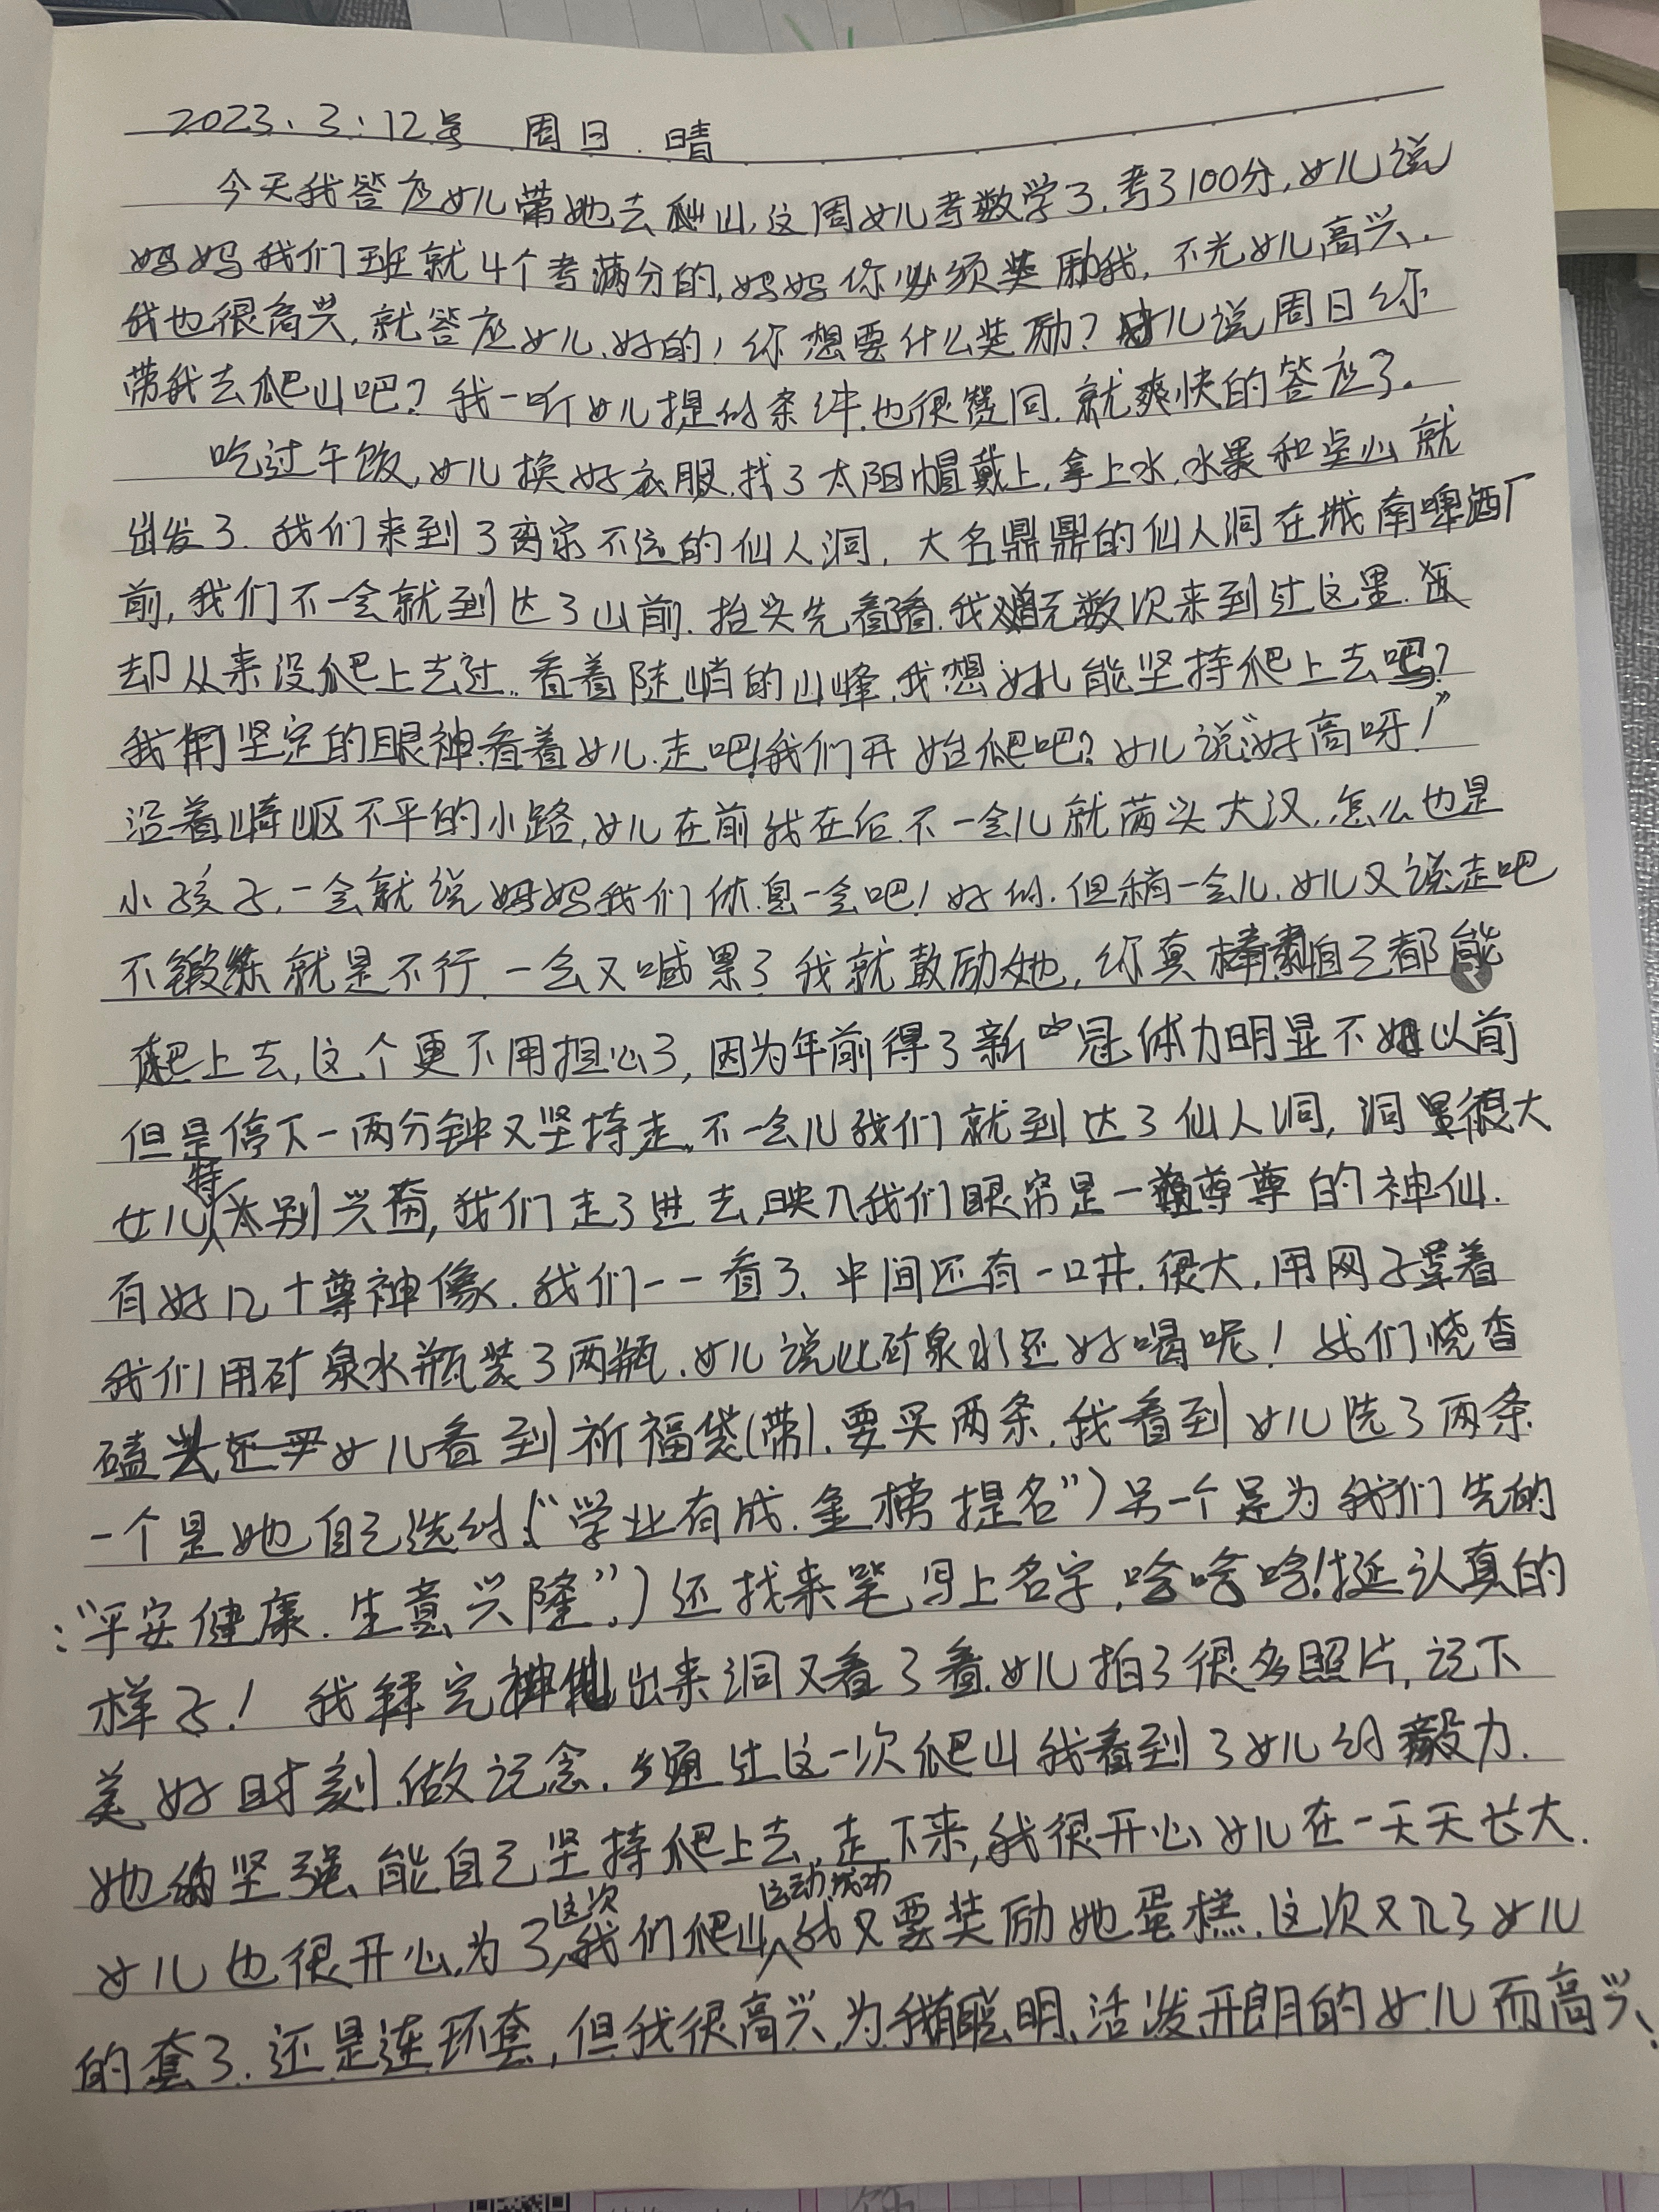 2023.3:12号 周日.晴
今天我答应女儿带她去爬山,这周女儿考数学了.考了100分,女儿说
妈妈我们班就4个考满分的,妈妈你必须奖励我,不光女儿高兴.
我也很高兴,就答应女儿.好的,你想要什么奖励?女儿说周日你
带我去爬山吧?我一听女儿提的条件.也很赞同.就爽快的答应了.
吃过午饭,女儿换好衣服.找了太阳帽戴上,拿上水.水果和点心就
出发了.我们来到了离家不远的仙人洞,大名鼎鼎的仙人洞在城南啤酒厂
前,我们不一会就到达了山前.抬头先看看.我无数次来到过这里.
却从来没爬上去过.看着陡峭的山峰.我想女儿能坚持爬上去吗?
我用坚定的眼神.看着女儿.走吧!我们开始爬吧?女儿说“好高呀!”
沿着崎岖不平的小路,女儿在前我在后.不一会儿就满头大汉.怎么也是
小孩子.一会就说妈妈我们休息一会吧!好的.但稍一会儿.女儿又说走吧
不锻练就是不行.一会又喊累了我就鼓励她,你真棒自己都能
爬上去,这个更不用担心了,因为年前得了新冠.体力明显不如以前
但是停下一两分钟又坚持走.不一会儿我们就到达了仙人洞,洞里很大
女儿特别兴奋,我们走了进去.映入我们眼帘是一尊尊的神仙.
有好几十尊神像.我们一一看了.中间还有一口井.很大,用网子罩着
我们用矿泉水瓶装了两瓶.女儿说比矿泉水还好喝呢!我们烧香
磕头女儿看到祈福袋(带).要买两条.我看到女儿选了两条
一个是她自己选的(“学业有成.金榜提名”)另一个是为我们先的
:“平安健康.生意兴隆”.)还找来笔,写上名字,哈哈哈!挺认真的
样子!我拜完神仙出来洞又看了看.女儿拍了很多照片,记下
美好时刻.做记念.通过这一次爬山我看到了女儿的毅力.
她的坚强、能自己坚持爬上去.走下来,我很开心女儿在一天天长大.
女儿也很开心.为了这次我们爬山运动.成功我又要奖励她蛋糕.这次又让女儿
的套了.还是连环套,但我很高兴.为我有聪明、活泼.开朗的女儿而高兴、